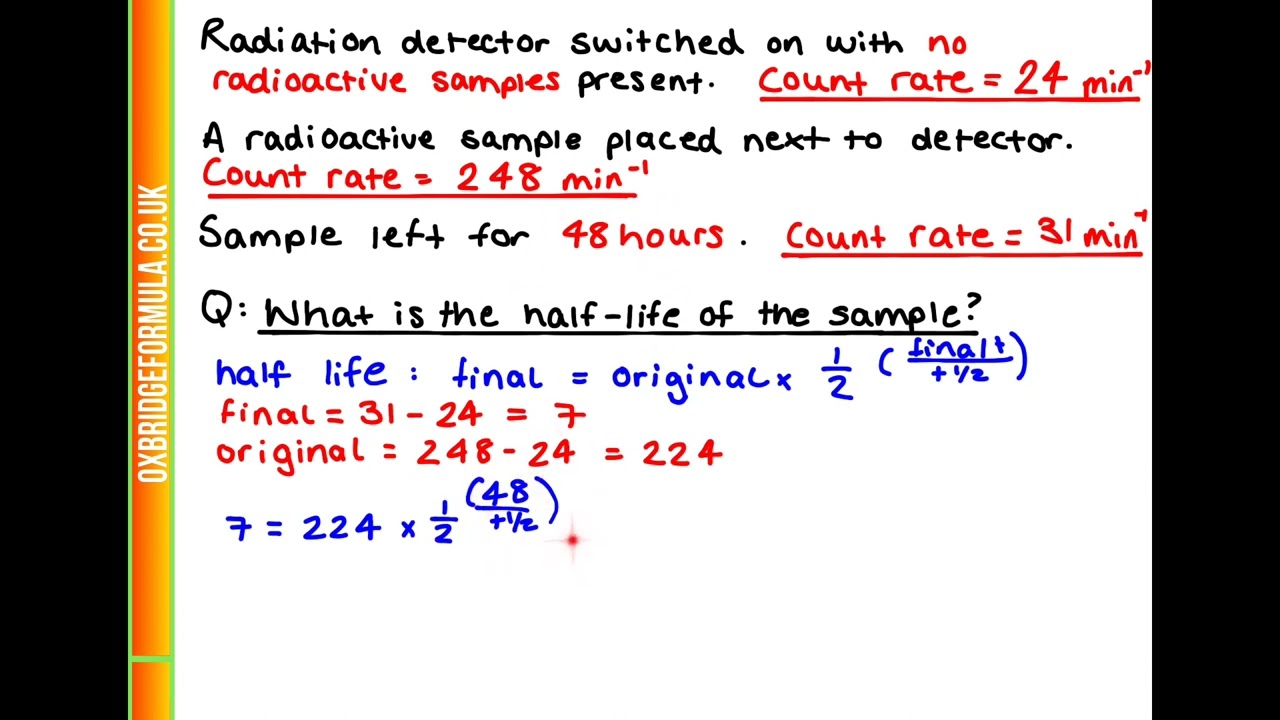 Radiation detector switched on with no
radioactive samples present. Count rate = 24 min⁻¹
A radioactive sample placed next to detector.
Count rate = 248 min⁻¹
Sample left for 48 hours. Count rate = 31 min⁻¹
Q: What is the half-life of the sample?
half life : final = original × 1/2 (final t / t 1/2)
final = 31 - 24 = 7
original = 248 - 24 = 224
7 = 224 × 1/2 (48 / t 1/2)
OXBRIDGEFORMULA.CO.UK